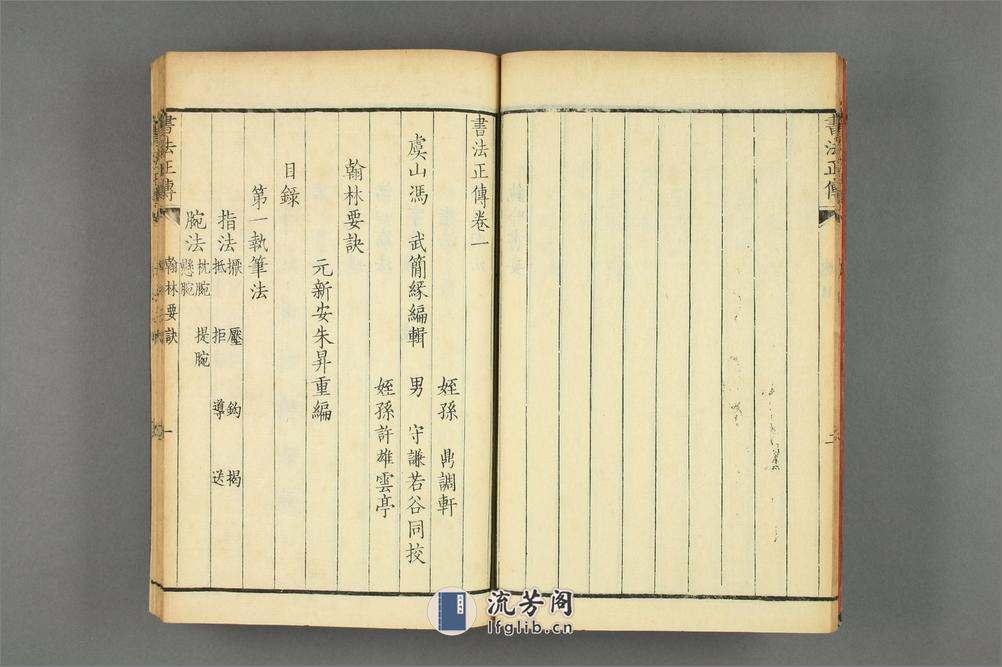 書法正傳
書法正傳卷一
姪孫 鼎調軒
虞山馮 武簡緣編輯 男 守謙若谷同挍
姪孫許雄雲亭
翰林要訣
元新安朱昇重編
目錄
第一執筆法
指法 擫 壓 鈎 揭
抵 拒 導 送
腕法 枕腕 提腕
懸腕
書法正傳
翰林要訣
一
流芳阁
lfglib.cn